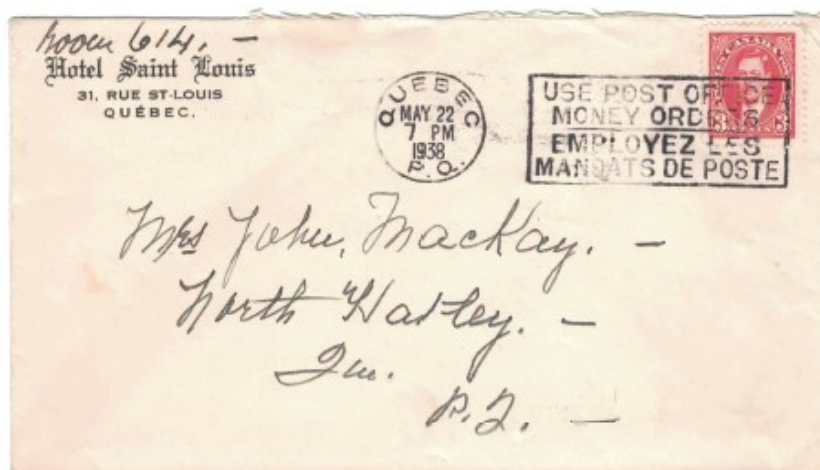 Room 614. -
Hotel Saint Louis
31, RUE ST-LOUIS
QUÉBEC.
QUEBEC
MAY 22
7 PM
1938
P.Q.
CANADA
3 3
USE POST OFFICE
MONEY ORDERS
EMPLOYEZ LES
MANDATS DE POSTE
Mrs John, MacKay. -
North Hatley. -
Que.
P.Q. -